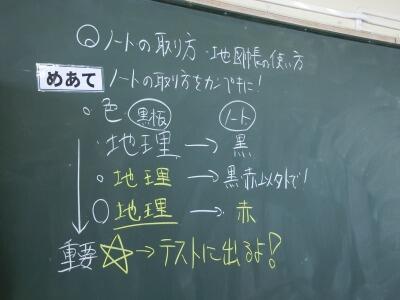 ◎ノートの取り方・地図帳の使い方
めあて ノートの取り方をカンペキに!
○色 黒板 ノート
・地理→黒
○地理→黒・赤以外で!
○地理→赤
重要☆→テストに出るよ!